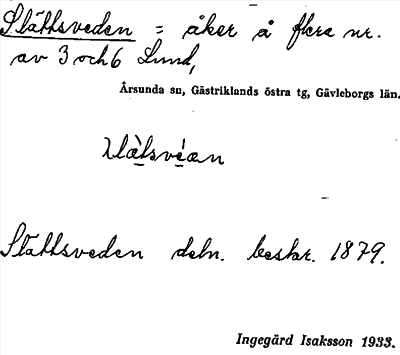 Slättsveden = åker å flera nr.
av 3 och 6 Lund,
Årsunda sn, Gästriklands östra tg, Gävleborgs län.
Slättsveden deln. beskr. 1879.
Ingegärd Isaksson 1933.